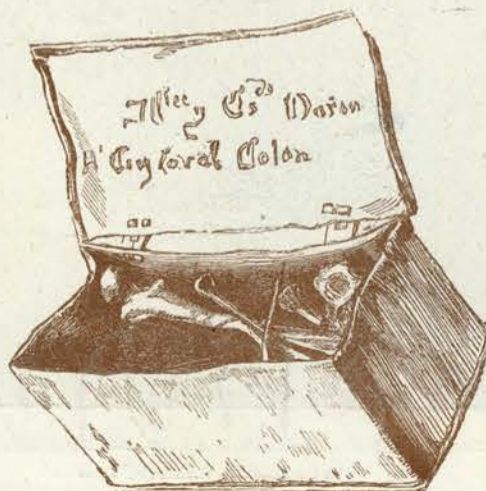 Jlltre y Esdo Varon
Dn Cristoval Colon